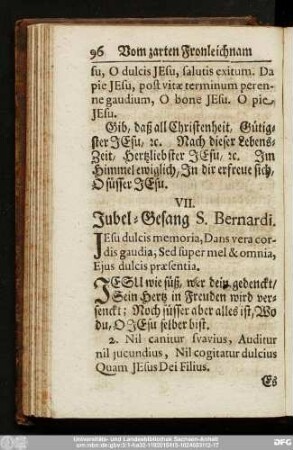 96 Vom zarten Fronleichnam
su, O dulcis JEsu, salutis exitum. Da
pie JEsu, post vitæ terminum peren-
ne gaudium, O bone JEsu. O pie
JEsu.
Gib, daß all Christenheit, Gütig-
ster JEsu, ꝛc. Nach dieser Lebens-
Zeit, Hertzliebster JEsu, ꝛc. Im
Himmel ewiglich, In dir erfreue sich,
O süsser JEsu.
VII.
Jubel-Gesang S. Bernardi.
JEsu dulcis memoria, Dans vera cor-
dis gaudia, Sed super mel & omnia,
Ejus dulcis præsentia.
JESU wie süß, wer dein gedenckt/
Sein Hertz in Freuden wird ver-
senckt: Noch süsser aber alles ist, Wo
du, O JEsu selber bist.
2. Nil canitur svavius, Auditur
nil jucundius, Nil cogitatur dulcius
Quam JEsus Dei Filius.
Es
Universitäts- und Landesbibliothek Sachsen-Anhalt
DFG